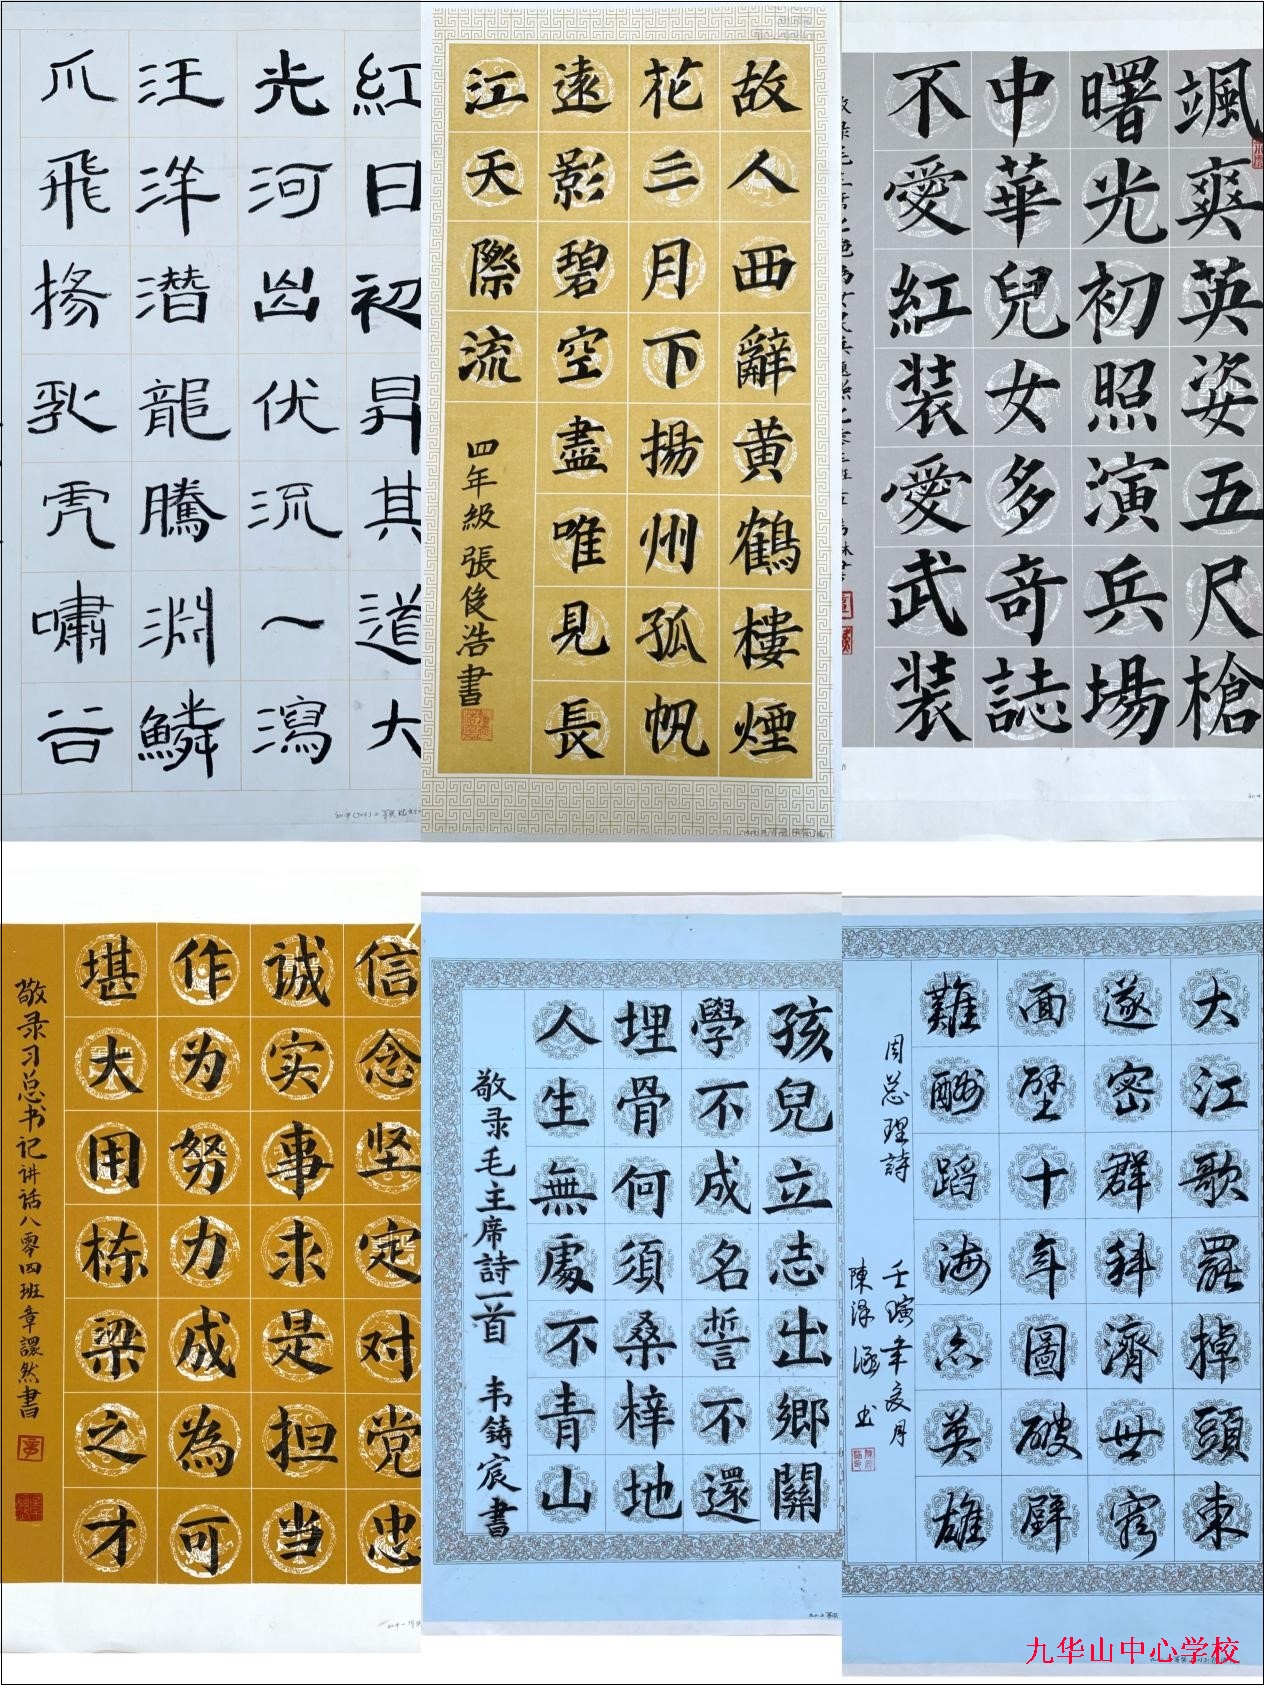 紅日初昇其道大
光河出伏流一瀉
汪洋潛龍騰淵鱗
爪飛揚乳虎嘯谷
故人西辭黄鶴樓煙
花三月下揚州孤帆
遠影碧空盡唯見長
江天際流
四年級張俊浩書
颯爽英姿五尺槍
曙光初照演兵場
中華兒女多奇誌
不愛紅装愛武装
信念坚定对党忠
诚实事求是担当
作为努力成為可
堪大用栋梁之才
敬录习总书记讲话八零四班章譞然書
孩兒立志出鄉關
學不成名誓不還
埋骨何須桑梓地
人生無處不青山
敬录毛主席詩一首 韦鋳宸書
大江歌罷掉頭東
邃密群科濟世窮
面壁十年圖破壁
難酬蹈海亦英雄
周总理詩 壬寅年夏月
陳泽涵书
九华山中心学校